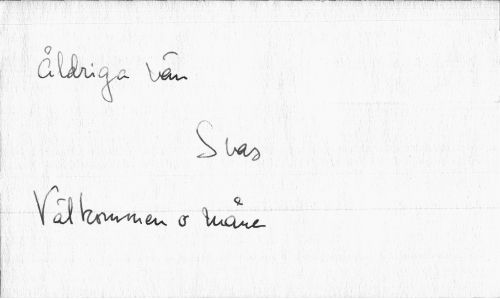 Åldriga vän
Svas
Välkommen o måne